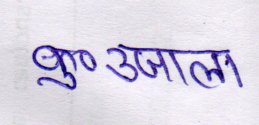 कु० उजाला